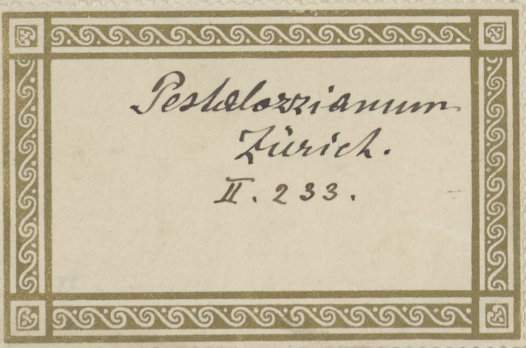 Pestalozzianum
Zürich.
II. 233.